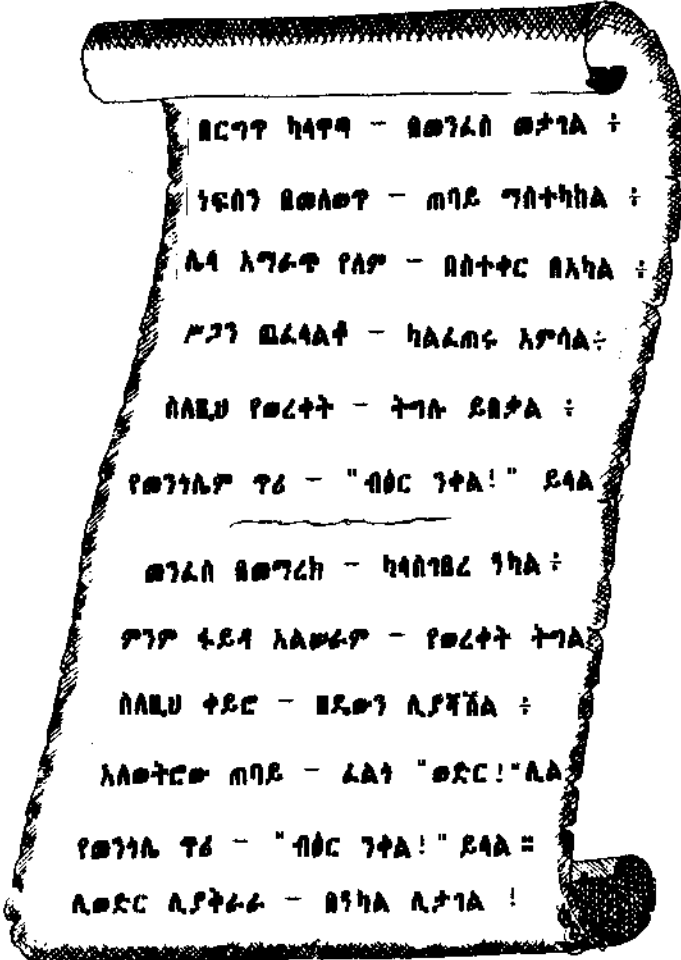 በርግጥ ካላዋጣ - በመንፈስ መታገል ፥
ነፍስን በመለወጥ - ጠባይ ማስተካከል ፥
ሌላ አማራጭ የለም - በስተቀር በአካል ፥
ሥጋን ጨፈላልቆ - ካልፈጠሩ አምሳል፥
ስለዚህ የወረቀት - ትግሉ ይበቃል ፥
የወንጎሌም ጥሪ - "ብዕር ንቀል!" ይላል
መንፈስ በመማረክ - ካላስገበረ ኀካል ፥
ምንም ፋይዳ አልሠራም - የወረቀት ትግል
ስለዚህ ቀይሮ - ዘዴውን ሊያሻሽል ፥
አለወትሮው ጠባይ - ፈልጎ "ወድር!" ሲል
የወንጎሌ ጥሪ - "ብዕር ንቀል!" ይላል ።
ሊወድር ሊያቅራራ - በኀካል ሊታገል !